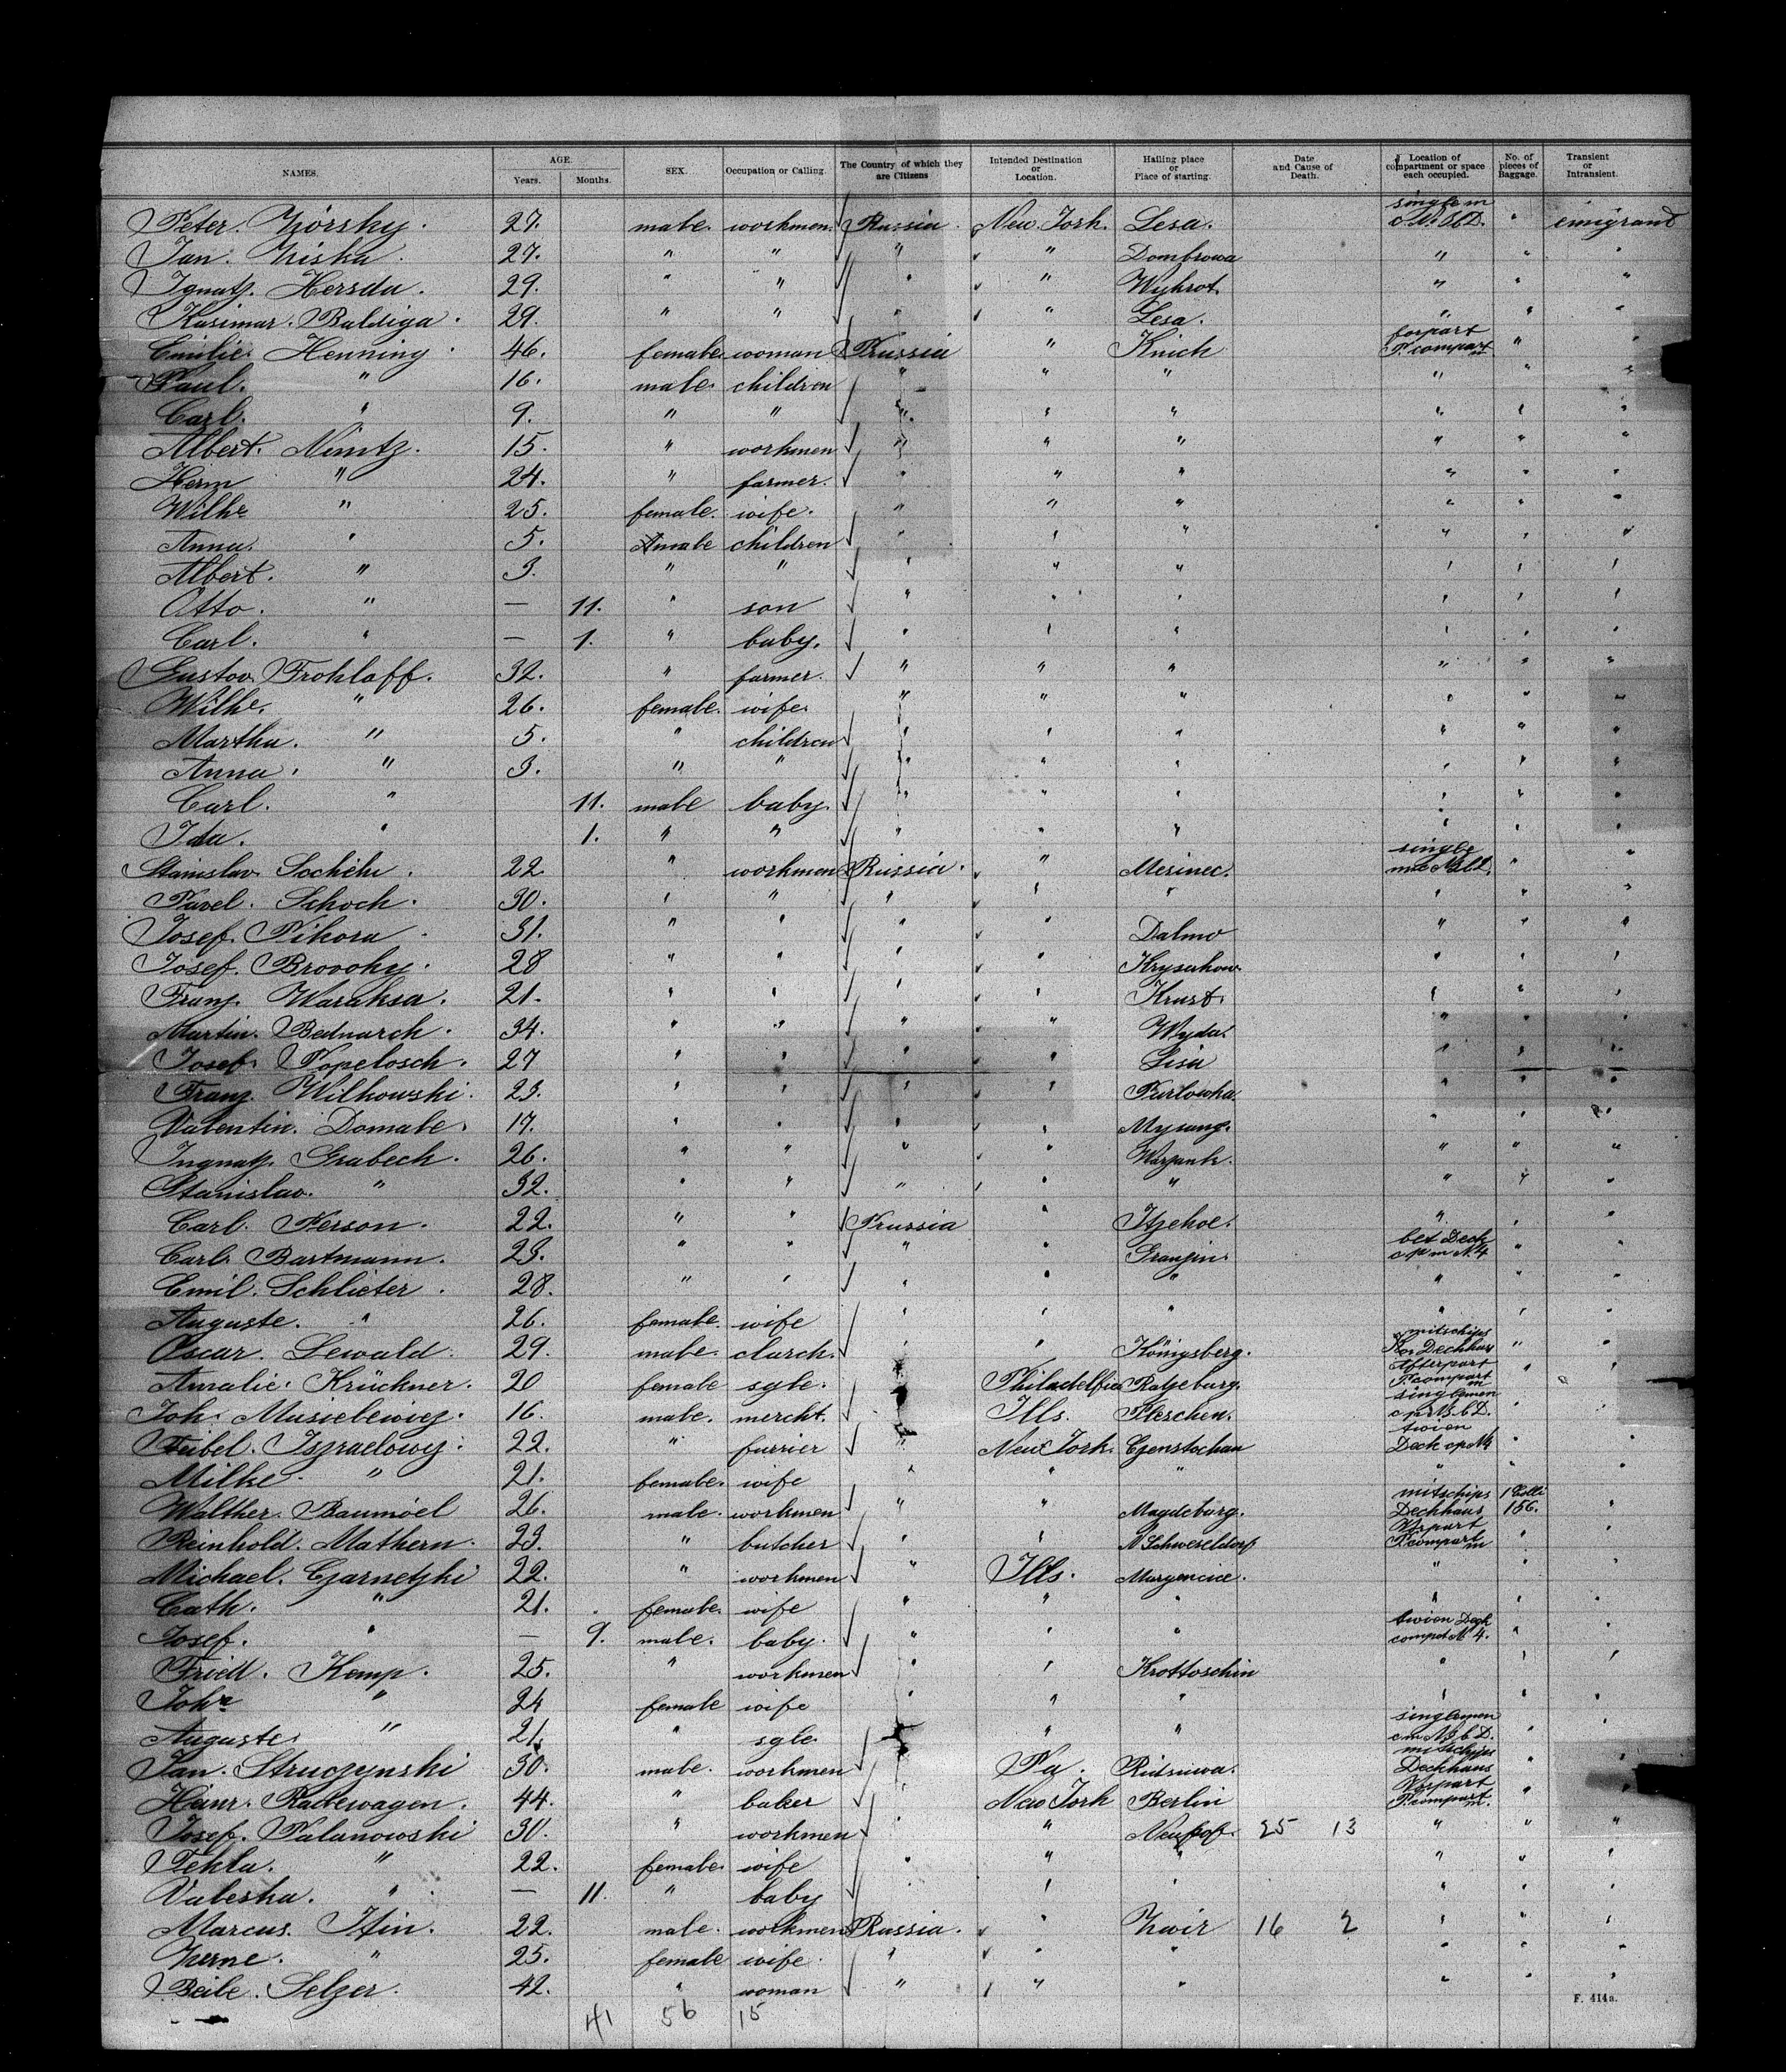 NAMES. AGE. Years. Months. SEX. Occupation or Calling. The Country of which they are Citizens Intended Destination or Location. Hailing place or Place of starting. Date and Cause of Death. Location of compartment or space each occupied. No. of pieces of Baggage. Transient or Intransient.
Peter. 27. male. workmen. Russia. New York. Lesa. single m " emigrant
Jan. 27. " " " " Dombrowa " " "
Ignatz. Hersda. 29. " " " " " " "
Kasimar. Baldiga. 29. " " " " Lesa. " " "
Emilie. Henning. 46. female. woman Prussia " Knich P. compart " "
Paul. " 16. male. children " " " " " "
Carl. " 9. " " " " " " " "
Albert. Nimtz. 15. " workmen " " " " " "
Herm " 24. " farmer. " " " " " "
Wilhe " 25. female. wife. " " " " " "
Anna. " 5. children " " " " " "
Albert. " 3. " " " " " " " "
Otto. " — 11. " son " " " " " "
Carl. " — 1. " baby. " " " " " "
Gustav Frohloff. 32. " farmer. " " " " " "
Wilhe. " 26. female. wife. " " " " " "
Martha. " 5. " children " " " " " "
Anna. " 3. " " " " " " " "
Carl. " 11. male baby. " " " " " "
Ida. " 1. " " " " " " " "
Stanislav. 22. " workmen Russia. " Mesinec. single " "
Pavel. Schoch. 30. " " " " " " " "
Josef. Pikora 31. " " " " Dalmo " " "
Josef. 28 " " " " " " "
Franz. Waraksa. 21. " " " " Krust. " " "
Martin. Bednarch. 34. " " " " Wyda. " " "
Josef. Popelosch. 27 " " " " Lisa " " "
Franz. Wilkowski. 23. " " " " " " "
Valentin. Domale. 17. " " " " " " "
Ingnatz. Grabech. 26. " " " " " " "
Stanislav. " 32. " " " " " " " "
Carl. Person. 22. " " Prussia " Itzehoe. " " "
Carl. Bartmann. 23. " " " " Granzin. bet Deck " "
Emil. Schlieter. 28. " " " " " " " "
Auguste. " 26. female. wife " " " " " "
Oscar. Lewald. 29. male. clarch. " " Königsberg. mitschips Deckhaus " "
Amalie. Krückner. 20 female sgle. " Philadelfia Ratzeburg. Afterpart P. compart " "
Joh. 16. male. mercht. " Ills. Pleschen. singlemen " "
Feibel. 22. " furrier " New York. Czenstochau twien Deck " "
Milke. " 21. female. wife " " " " " "
Walther. Baumöel 26. male. workmen " " Magdeburg. mitschips Deckhaus 1 Colli 156. "
Reinhold. Mathern. 23. " butcher " " Vorpart P. compart " "
Michael. Czarnetzki 22. " workmen " Ills. " " "
Cath. " 21. female. wife " " " " " "
Josef. " — 9. male. baby. " " " twien Deck " "
Fried. Kemp. 25. " workmen " " Krottoschin " " "
Johe " 24 female wife " " " " " "
Auguste. " 21. " sgle. " " singlemen " "
Jan. Struczynski 30. male. workmen Pa. mitschips Deckhaus " "
Heinr. Radewagen. 44. " baker " New York Berlin Vorpart P. compart " "
Josef. Palanowski 30. " workmen " " 25 13 " " "
Tekla. " 22. female. wife " " " " " "
Valeska. " — 11. " baby " " " " " "
Marcus. Itin. 22. male. workmen Russia. " Zwir 16 2 " " "
Zerne. " 25. female wife. " " " " " "
Beile. Selzer. 42. " woman " " " " " "
F. 414a.
41 56 15